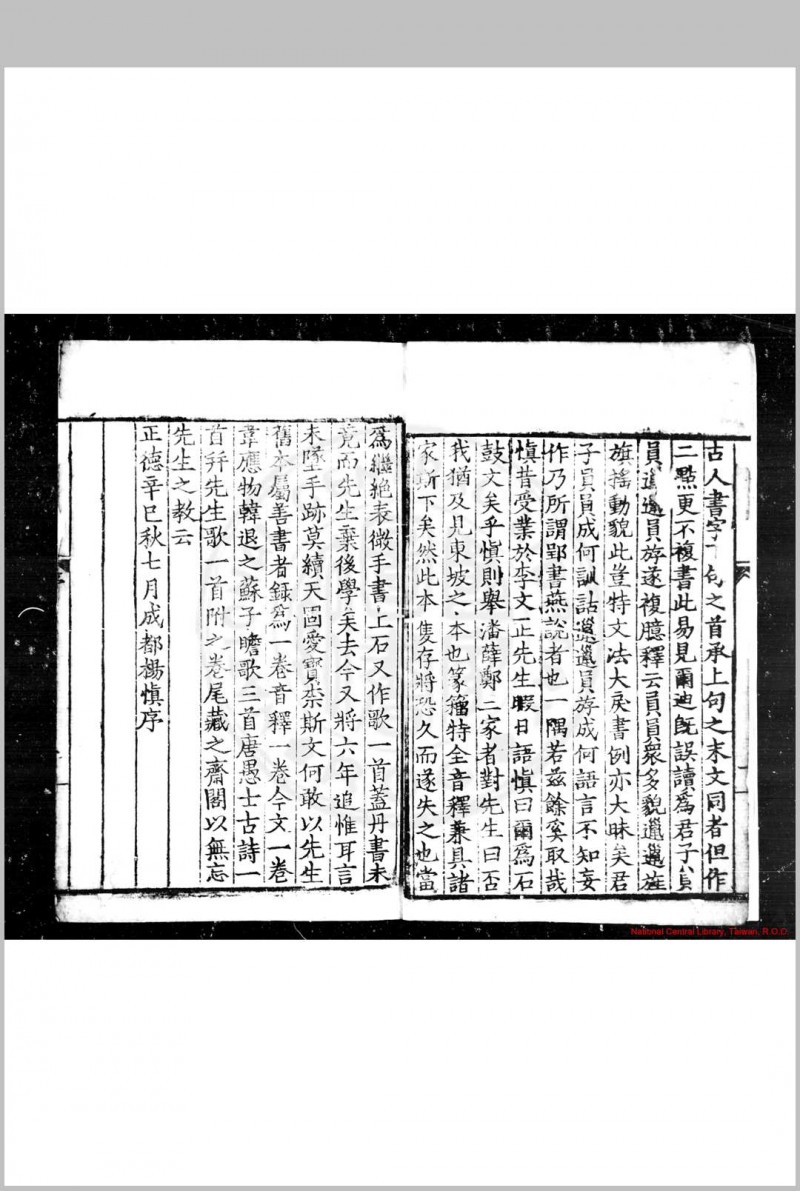 古人書字下句之首承上句之末文同者但作
二點更不複書此易見爾迪旣誤讀爲君子員
員邋邋員斿遂複臆釋云員員衆多貌邋邋旌
旗搖動貌此豈特文法大戾書例亦大昧矣君
子員員成何訓詁邋邋員斿成何語言不知妄
作乃所謂郢書燕說者也一隅若兹餘奚取哉
慎昔受業於李文正先生暇日語慎曰爾爲石
鼓文矣乎慎則舉潘薛鄭二家者對先生曰否
我猶及見東坡之本也篆籀特全音釋兼具諸
家斯下矣然此本隻存將恐久而遂失之也當
爲繼絶表微手書上石又作歌一首蓋丹書未
竟而先生棄後學矣去今又將六年追惟耳言
未墜手跡莫續天固愛寶柰斯文何敢以先生
舊本屬善書者錄爲一卷音釋一卷今文一卷
韋應物韓退之蘇子瞻歌三首唐愚士古詩一
首幷先生歌一首附之卷尾藏之齋閣以無忘
先生之教云
正德辛巳秋七月成都楊慎序
National Central Library, Taiwan, R.O.C